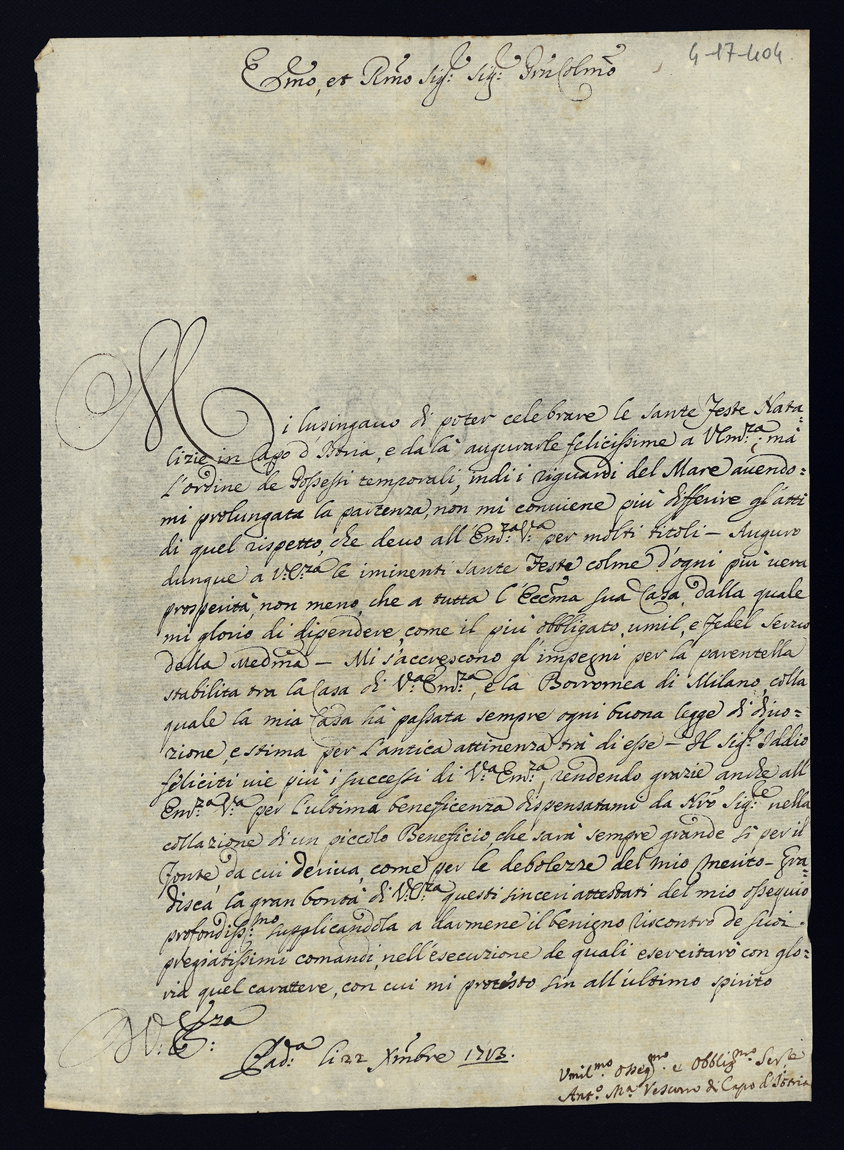 4-17-404
Emo, et Rmo Sig:r Sig:r Prn Colmo
Mi lusingauo di poter celebrare le sante Feste Nata=
lizie in Capo d'Istria, e da là augurarle felicissime a V.Em:za; mà
L'ordine de Possessi temporali, indi i riguardi del Mare auendo=
mi prolungata la partenza, non mi conuiene più differire gl'atti
di quel rispetto, che deuo all'Em:za V:a per molti titoli – Auguro
dunque a V:E:za le iminenti sante Feste colme d'ogni più uera
prosperità, non meno, che a tutta l'Eccma sua Casa, dalla quale
mi glorio di dipendere, come il più obbligato, umil, e fedel seruo
della Medma – Mi s'accrescono gl'impegni per la parentella
stabilita tra la Casa di V:a Em:za, e la Borromea di Milano, colla
quale la mia Casa hà passata sempre ogni buona legge di diuo=
zione, e stima per l'antica attinenza trà di esse – Il Sig:r Iddio
feliciti uie più i successi di V:a Em:za, rendendo grazie anche all'
Em:za V:a per l'ultima beneficenza dispensatami da Nro Sig:re nella
collazione di un piccolo Beneficio, che sarà sempre grande sì per il
Fonte, da cui deriua, come per le debolezze del mio Merito – Gra=
disca la gran bontà di V:E:za questi sinceri attestati del mio ossequio
profondiss:mo, supplicandola a darmene il benigno riscontro de suoi
pregiatissimi comandi, nell'esecuzione de quali esercitarò con glo=
ria quel carattere, con cui mi protesto sin all'ultimo spirito
Di V: E:za
Pad:a li 22 Xmbre 1713.
Vmil:mo Osseq:mo e Obblig:mo Ser:re
Ant:o M:a Vescouo di Capo d'Istria